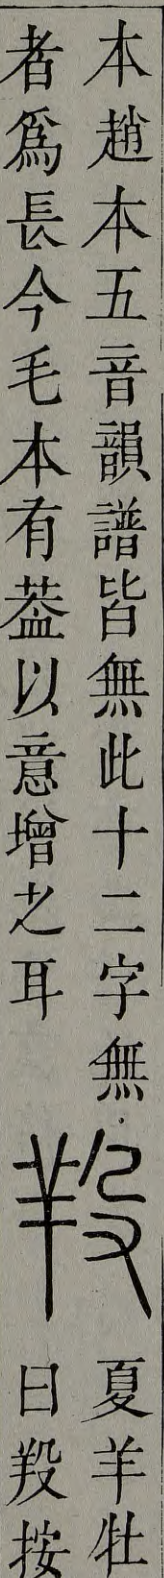 本趙本五音韻譜皆無此十二字無
者爲長今毛本有葢以意增之耳
羖
夏羊牡
曰羖按